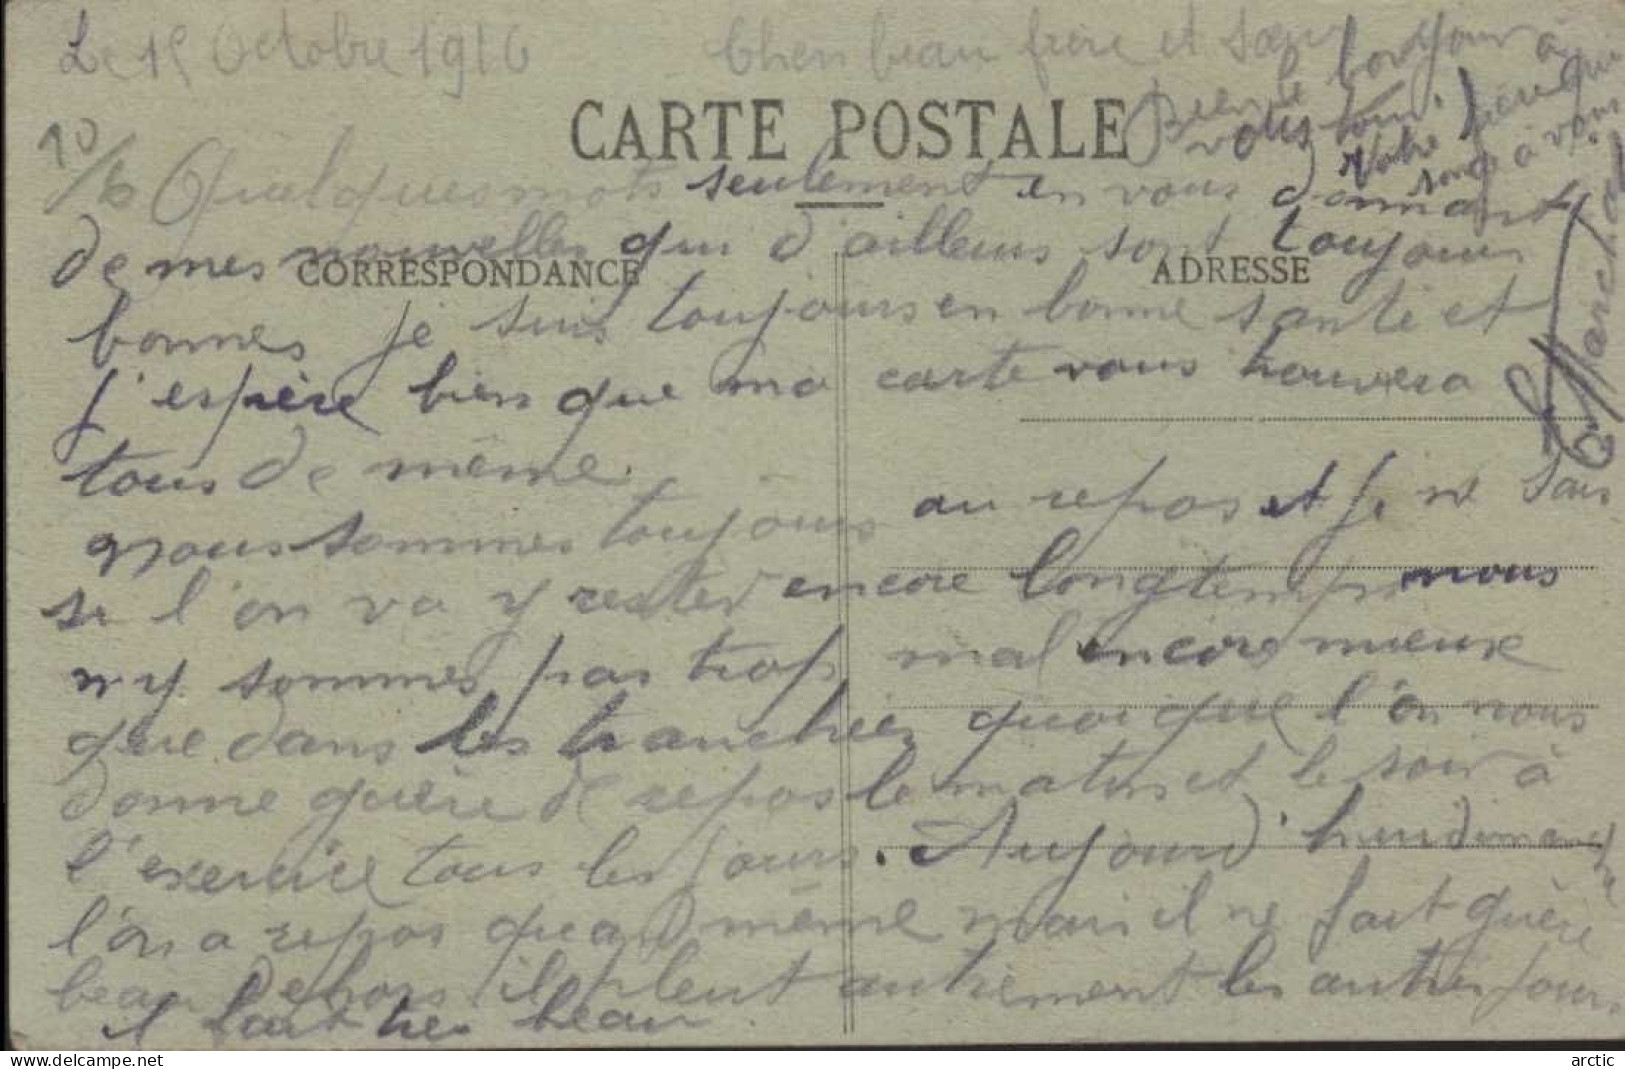 Le 15 Octobre 1916
Cher beau frère et Soeur
Bien le bonjour à
vous tous.
Votre frère qui
songe à vous
Marchal
10/6
CARTE POSTALE
Quelques mots seulement en vous donnant
de mes nouvelles qui d'ailleurs sont toujours
CORRESPONDANCE
ADRESSE
bonnes je suis toujours en bonne santé et
j'espère bien que ma carte vous trouvera
tous de même.
nous sommes toujours au repos et je ne sais
si l'on va y rester encore longtemps nous
n'y sommes pas trop mal encore mieux
que dans les tranchées quoique l'on nous
donne guère de repos le matin et le soir à
l'exercice tous les jours. Aujourd'hui dimanche
l'on a repos quand même mais il ne fait guère
beau dehors il pleut autrement les autres jours
il fait très beau
delcampe.net
arctic